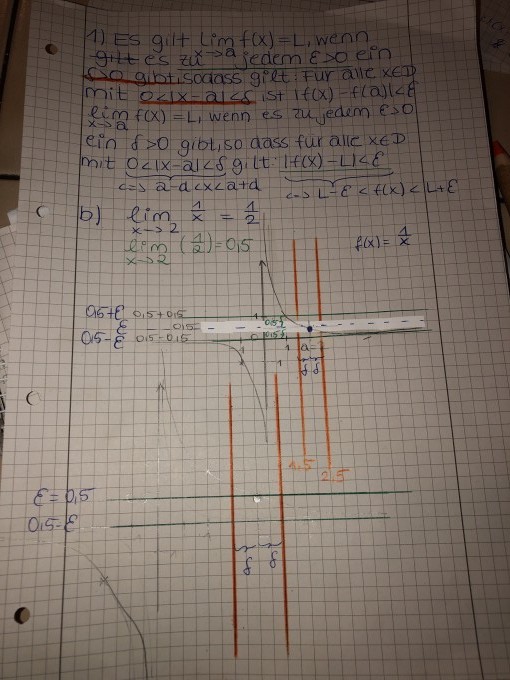 1) Es gilt lim f(x) = L, wenn
x→a
gilt es zu jedem ε>0 ein
δ>0 gibt, sodass gilt: für alle x∈D
mit 0<|x-a|<δ ist |f(x) - f(a)|<ε
lim f(x) = L, wenn es zu jedem ε>0
x→a
ein δ>0 gibt, so dass für alle x∈D
mit 0<|x-a|<δ gilt: |f(x) - L|<ε
<=> a-d<x<a+d <=> L-ε < f(x) < L+ε
b) lim 1/x = 1/2
x→2
lim (1/2) = 0,5 f(x) = 1/x
x→2
0,5+ε 0,5+0,5
ε 0,5
0,5-ε 0,5-0,5
δ δ
1.5
2.5
ε = 0,5
0,5-ε
δ δ